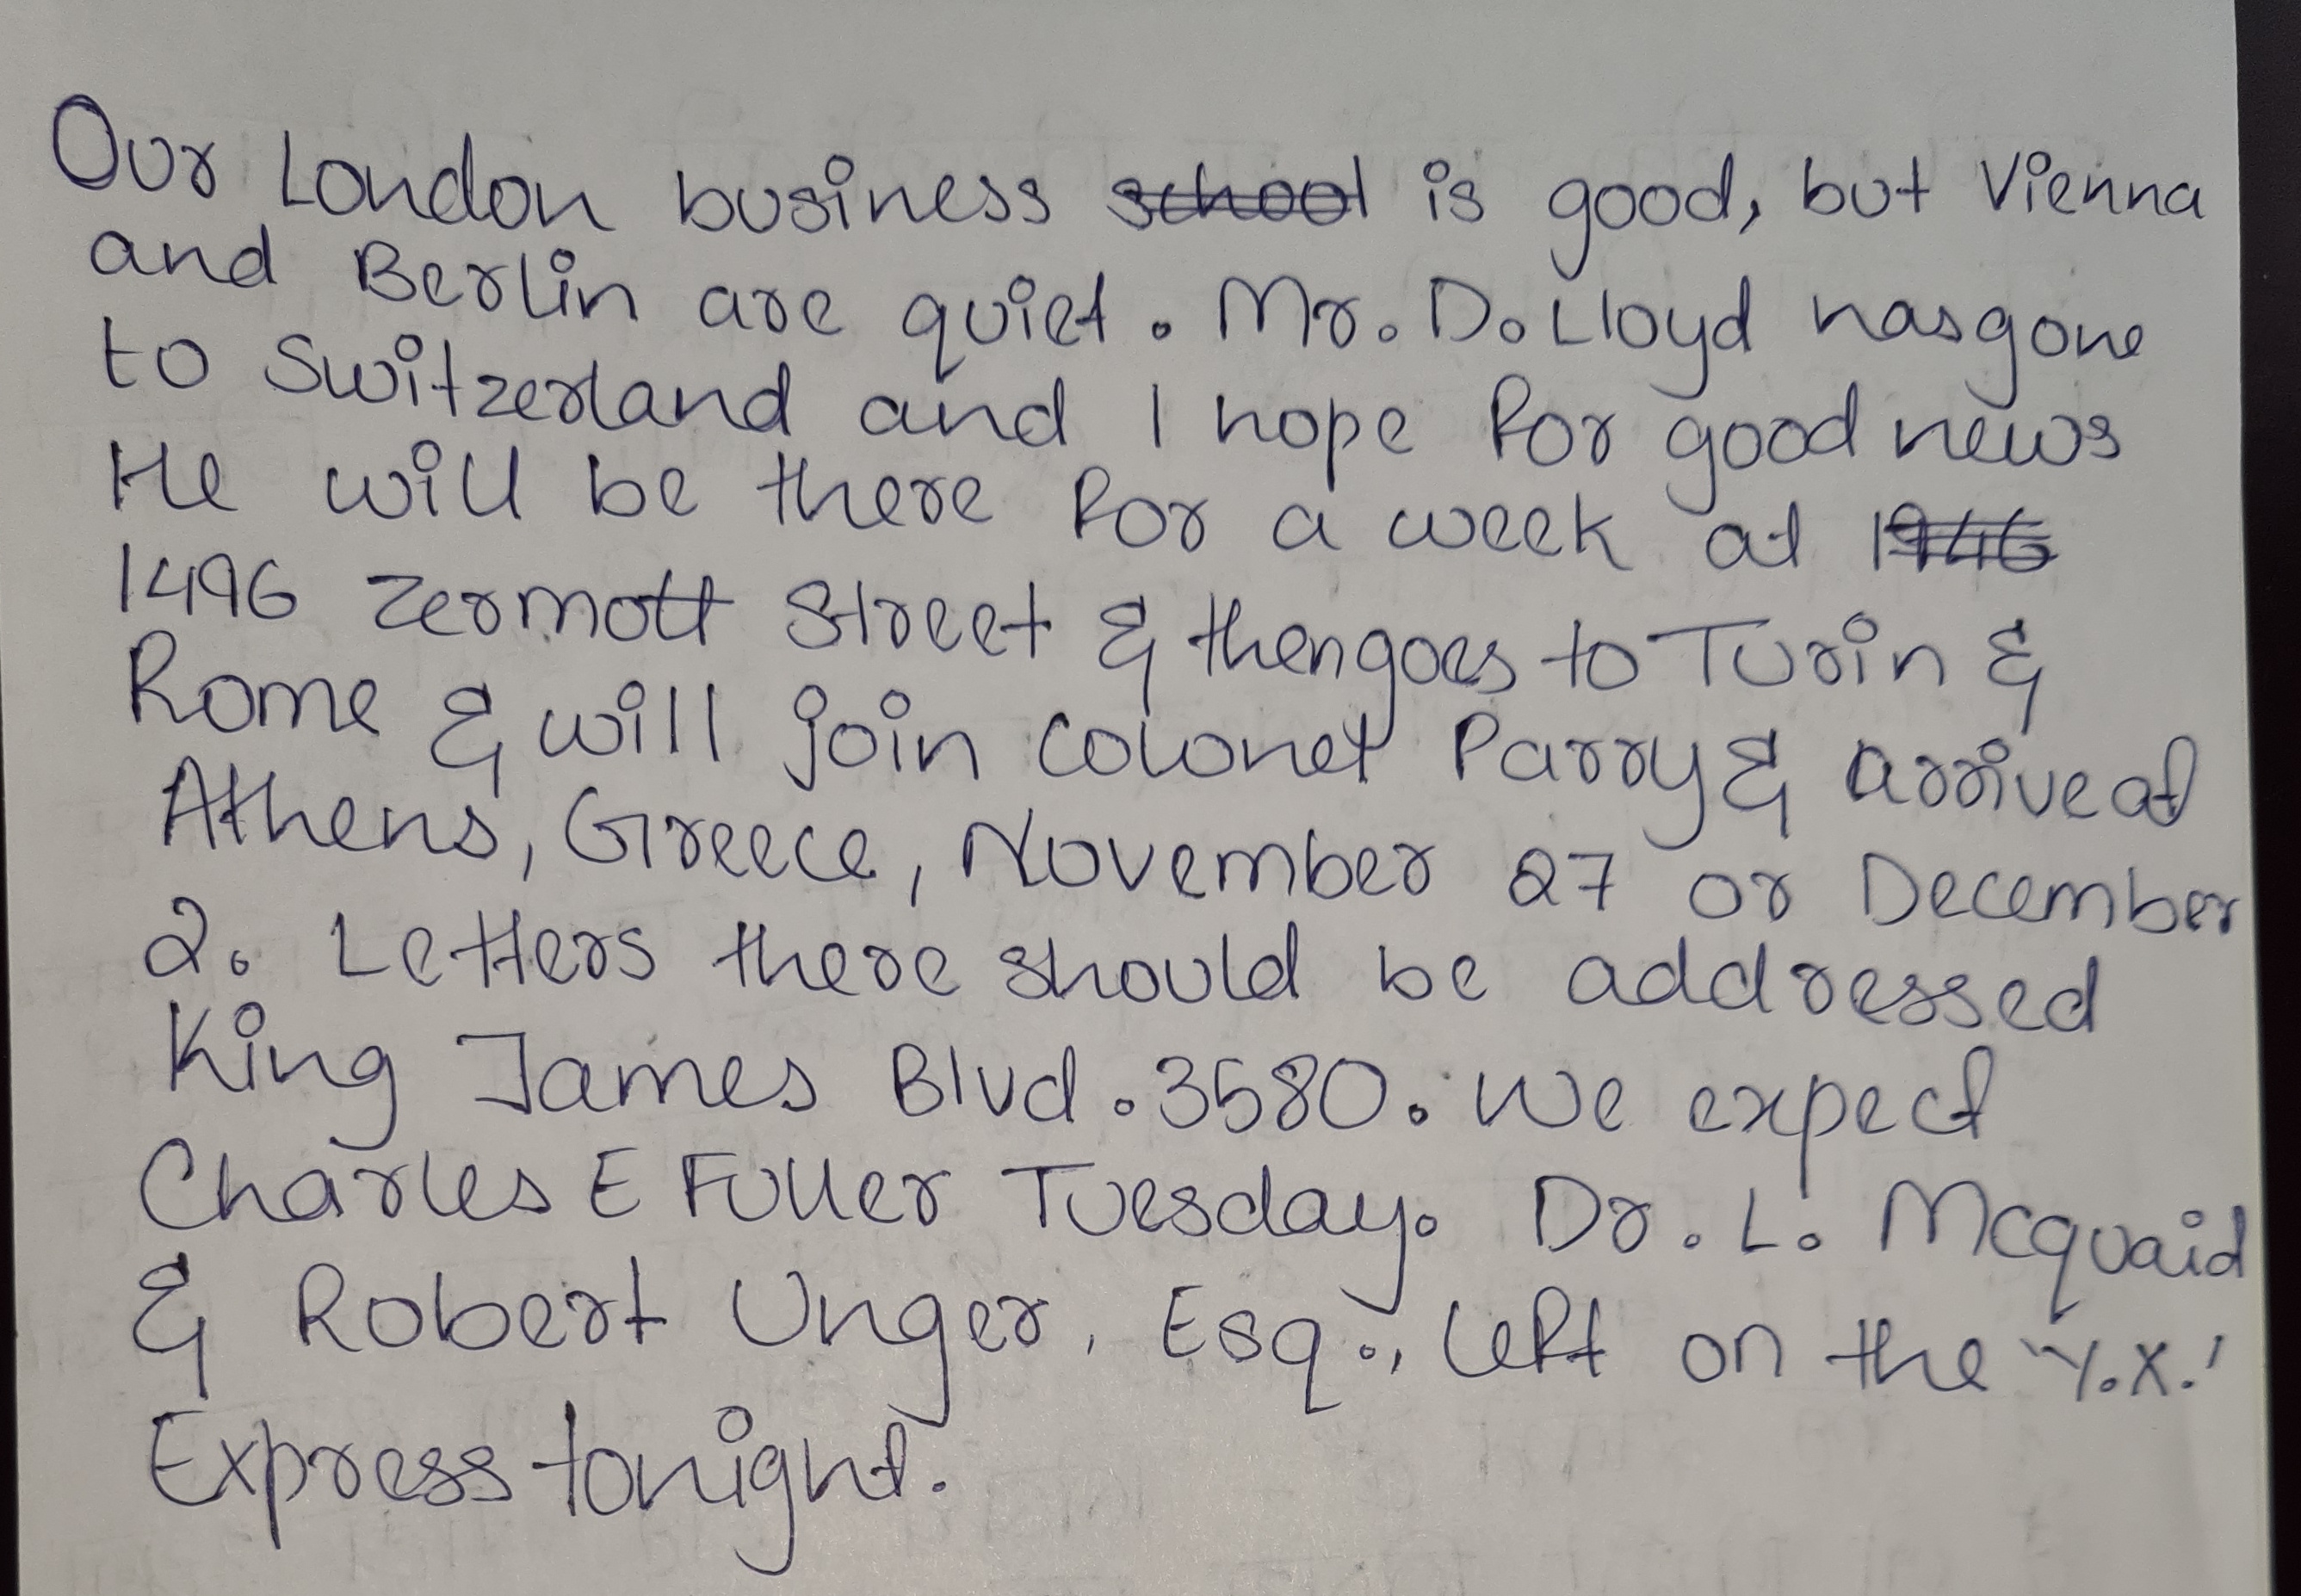 Our London business school is good, but Vienna
and Berlin are quiet. Mr. D. Lloyd has gone
to Switzerland and I hope for good news
He will be there for a week at 1946
1496 Zermott Street & then goes to Turin &
Rome & will join Colonel Parry & arrive at
Athens, Greece, November 27 or December
2. Letters there should be addressed
King James Blvd. 3580. We expect
Charles E Fuller Tuesday. Dr. L. Mcquaid
& Robert Unger, Esq., left on the 'Y.X.'
Express tonight.